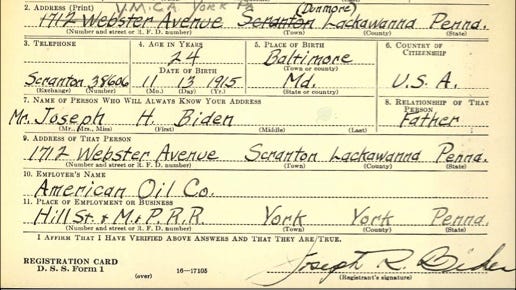 Y.M.C.A. YORK PA (Dunmore)
2. ADDRESS (Print)
1712 Webster Avenue Scranton Lackawanna Penna.
(Number and street or R. F. D. number) (Town) (County) (State)
3. TELEPHONE 4. AGE IN YEARS 5. PLACE OF BIRTH 6. COUNTRY OF CITIZENSHIP
24 Baltimore
DATE OF BIRTH (Town or county)
Scranton 38606 11 13 1915 Md. U.S.A.
(Exchange) (Number) (Mo.) (Day) (Yr.) (State or country)
7. NAME OF PERSON WHO WILL ALWAYS KNOW YOUR ADDRESS 8. RELATIONSHIP OF THAT PERSON
Mr. Joseph H. Biden Father
(Mr., Mrs., Miss) (First) (Middle) (Last)
9. ADDRESS OF THAT PERSON
1712 Webster Avenue Scranton Lackawanna Penna.
(Number and street or R. F. D. number) (Town) (County) (State)
10. EMPLOYER'S NAME
American Oil Co.
11. PLACE OF EMPLOYMENT OR BUSINESS
Hill St. & M. & P. R. R. York York Penna.
(Number and street or R. F. D. number) (Town) (County) (State)
I AFFIRM THAT I HAVE VERIFIED ABOVE ANSWERS AND THAT THEY ARE TRUE.
REGISTRATION CARD
D. S. S. Form 1 (over) 16—17105 Joseph R. Biden
(Registrant's signature)